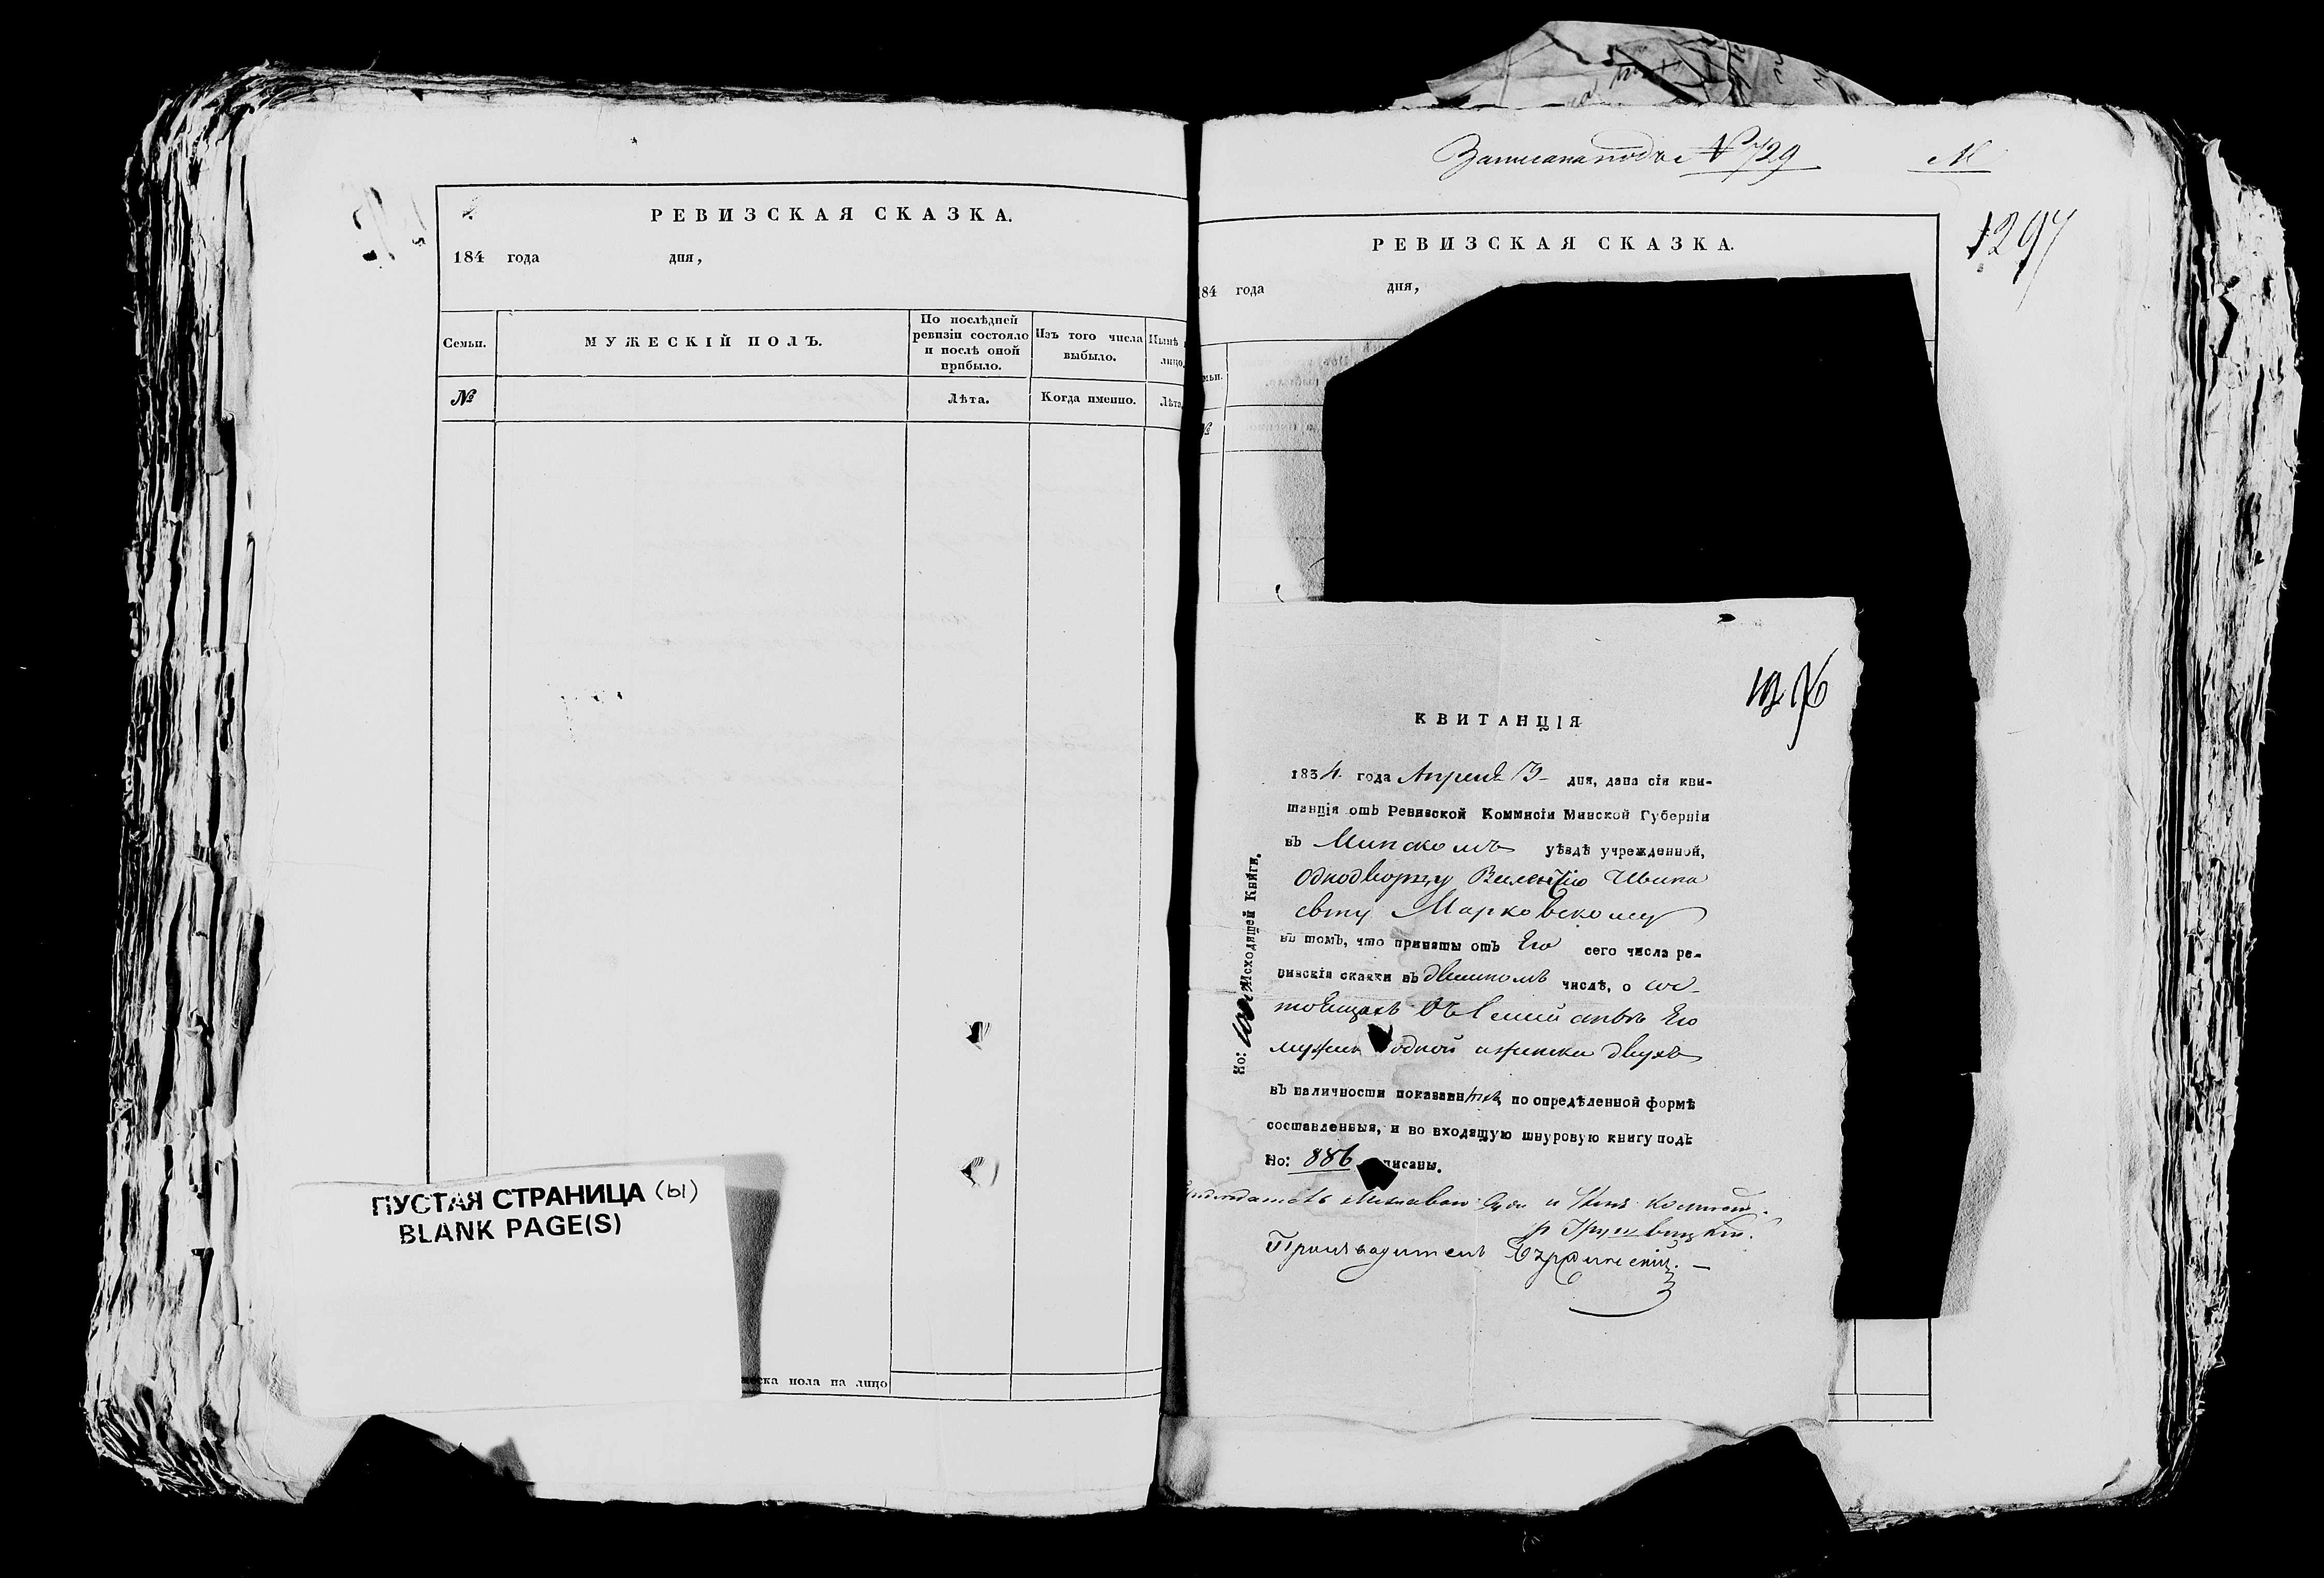 РЕВИЗСКАЯ СКАЗКА.
184 года дня,
Семьи.
МУЖЕСКІЙ ПОЛЪ.
По послѣдней
ревизіи состояло
и послѣ оной
прибыло.
Изъ того числа
выбыло.
Нынѣ
лицо
№
Лѣта.
Когда именно.
Лѣта
ПУСТАЯ СТРАНИЦА (Ы)
BLANK PAGE(S)
ска пола на лицо
Записана подъ № 729
1297
РЕВИЗСКАЯ СКАЗКА.
84 года дня,
КВИТАНЦІЯ
1834 года Апреля 13 дня, дана сія кви-
танція отъ Ревизской Коммисіи Минской Губерніи
въ Минскомъ уѣздѣ учрежденной,
Однодворцу Ивана
сыну Марковскому
въ томъ, что приняты отъ Его сего числа ре-
визскія сказки въ двойномъ числѣ, о сос-
тоящихъ въ Его
одной двухъ
въ наличности показанныхъ по опредѣленной формѣ
составленныя, и во входящую шнуровую книгу подъ
Но: 886 писаны.
Производитель
Но: Исходящей Книги.